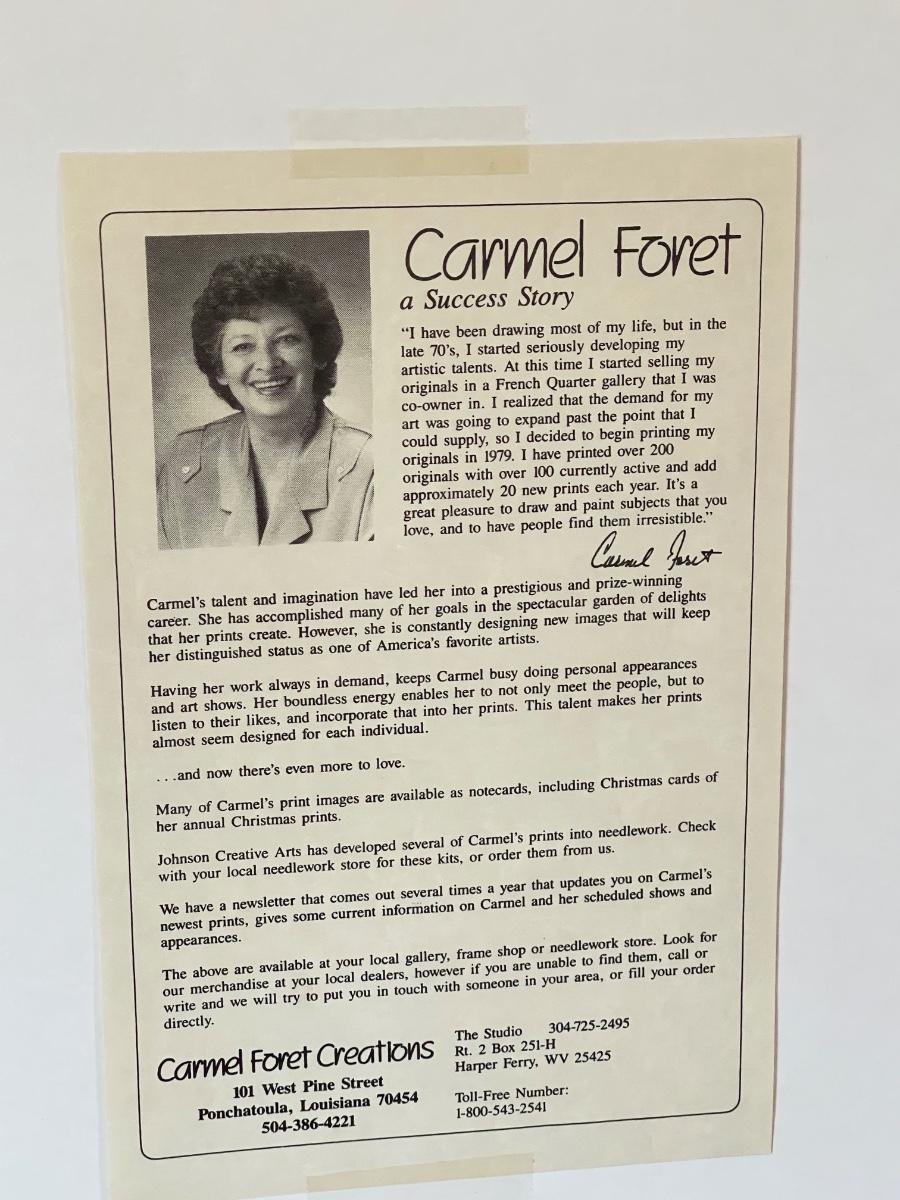 Carmel Foret
a Success Story
“I have been drawing most of my life, but in the
late 70's, I started seriously developing my
artistic talents. At this time I started selling my
originals in a French Quarter gallery that I was
co-owner in. I realized that the demand for my
art was going to expand past the point that I
could supply, so I decided to begin printing my
originals in 1979. I have printed over 200
originals with over 100 currently active and add
approximately 20 new prints each year. It's a
great pleasure to draw and paint subjects that you
love, and to have people find them irresistible.”
Carmel Foret
Carmel's talent and imagination have led her into a prestigious and prize-winning
career. She has accomplished many of her goals in the spectacular garden of delights
that her prints create. However, she is constantly designing new images that will keep
her distinguished status as one of America's favorite artists.
Having her work always in demand, keeps Carmel busy doing personal appearances
and art shows. Her boundless energy enables her to not only meet the people, but to
listen to their likes, and incorporate that into her prints. This talent makes her prints
almost seem designed for each individual.
. . .and now there's even more to love.
Many of Carmel's print images are available as notecards, including Christmas cards of
her annual Christmas prints.
Johnson Creative Arts has developed several of Carmel's prints into needlework. Check
with your local needlework store for these kits, or order them from us.
We have a newsletter that comes out several times a year that updates you on Carmel's
newest prints, gives some current information on Carmel and her scheduled shows and
appearances.
The above are available at your local gallery, frame shop or needlework store. Look for
our merchandise at your local dealers, however if you are unable to find them, call or
write and we will try to put you in touch with someone in your area, or fill your order
directly.
Carmel Foret Creations
101 West Pine Street
Ponchatoula, Louisiana 70454
504-386-4221
The Studio 304-725-2495
Rt. 2 Box 251-H
Harper Ferry, WV 25425
Toll-Free Number:
1-800-543-2541